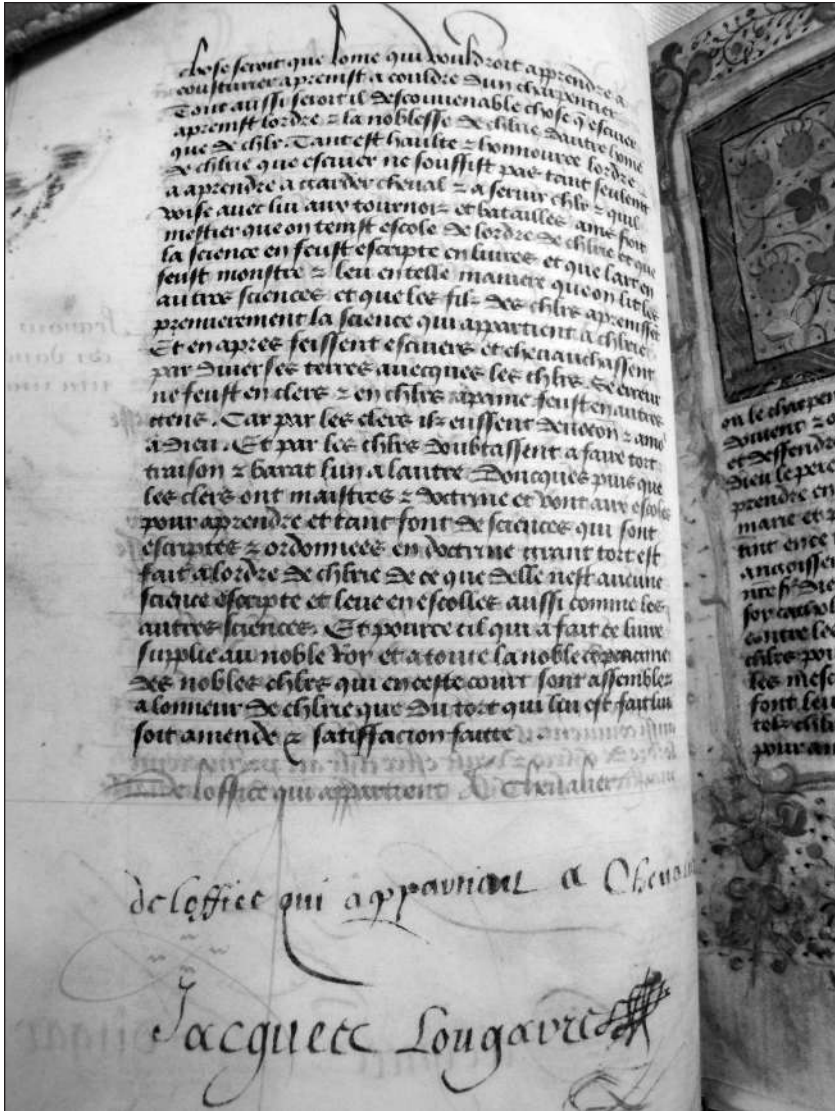 chose seroit que lome qui vouldroit apprendre a
cousturier apreinst a couldre dun charpentier
Tout aussi seroit il descouvenable chose q̃ escuier
apreinst lordre ⁊ la noblesse de chlrie dautre home
que de chlr. Tant est haulte ⁊ honnouree lordre
de chlrie que escuier ne souffist pas tant seulent
a aprendre a garder cheual ⁊ a seruir chlr ⁊ quil
voise auec lui aux tournois et batailles ains soit
mestier que on tenist escole de lordre de chlrie et que
la science en feust escripte en liures et que lart en
feust monstre ⁊ leu en telle maniere que on lit les
autres sciences et que les filz des chlrs apreinssent
premierement la science qui appartient a chlrie
Et en apres feissent escuiers et cheuauchassent
par diuerses terres auecques les chlrs. Se erreur
ne feust en clers ⁊ en chlrs a paine feust en autres
gens. Car par les clers ilz eussent deuocon ⁊ amo
a dieu. Et par les chlrs doubtassent a faire tort
traison ⁊ barat lun a lautre Doncques puis que
les clers ont maistres ⁊ doctrine et vont aux escoles
pour aprendre et tant sont de sciences qui sont
escriptes ⁊ ordonnees en doctrine grant tort est
fait a lordre de chlrie de ce que delle nest aucune
science escripte et leue en escolles aussi comme les
autres sciences. Et pource cil qui a fait ce liure
supplie au noble Roy et a toute la noble copaignie
des nobles chlrs qui en ceste court sont assemblez
a lonneur de chlrie que du tort qui lui est fait lui
soit amende ⁊ satiffacion faitte
de loffice qui appartient a Cheualier
de loffice qui appartient a Cheua
Jacques Lougarre
ou le charpen
doiuent ⁊ o
et deffendre
dieu le pere
prendre en
marie et p
tant en ce
angoisse
nre sr̃ Di
foy cathol
contre les
chlrs pou
les mesc
font leu
telz chl
pour a